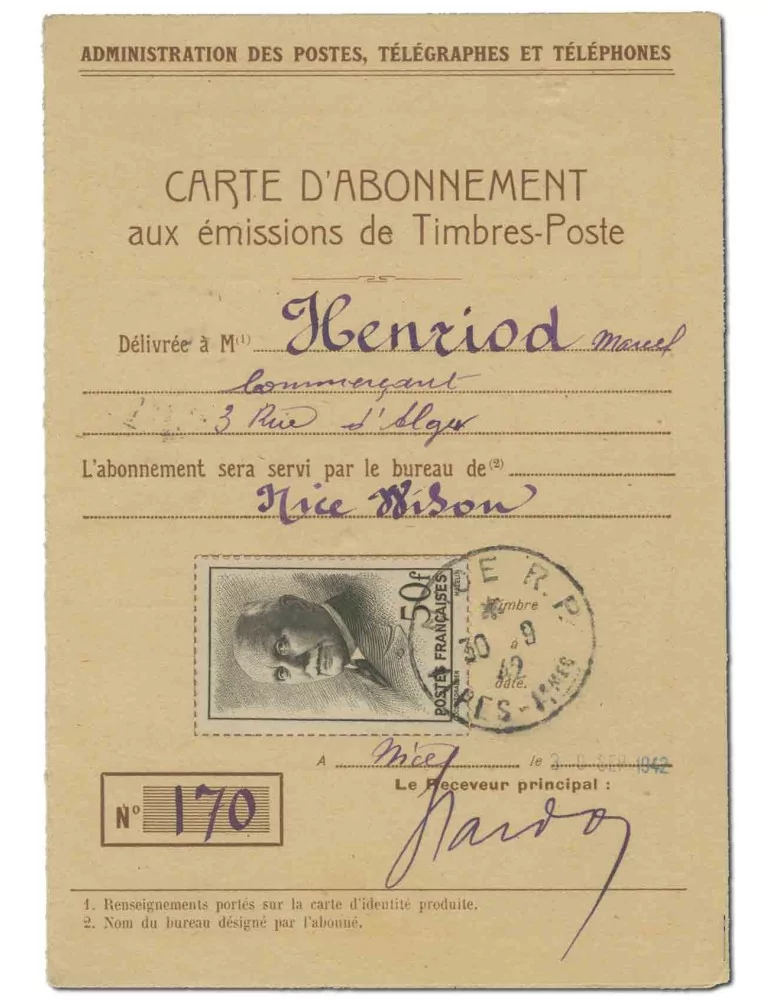 ADMINISTRATION DES POSTES, TÉLÉGRAPHES ET TÉLÉPHONES
CARTE D'ABONNEMENT
aux émissions de Timbres-Poste
Délivrée à M(1) Henriod Marcel
Commerçant
3 Rue d'Alger
L'abonnement sera servi par le bureau de(2)
Nice Wilson
50f
POSTES FRANÇAISES
NICE R.P.
Timbre
à
date.
30 9
42
ALPES-MMES
A Nice le 30 SEP 1942
Le Receveur principal :
N° 170
1. Renseignements portés sur la carte d'identité produite.
2. Nom du bureau désigné par l'abonné.